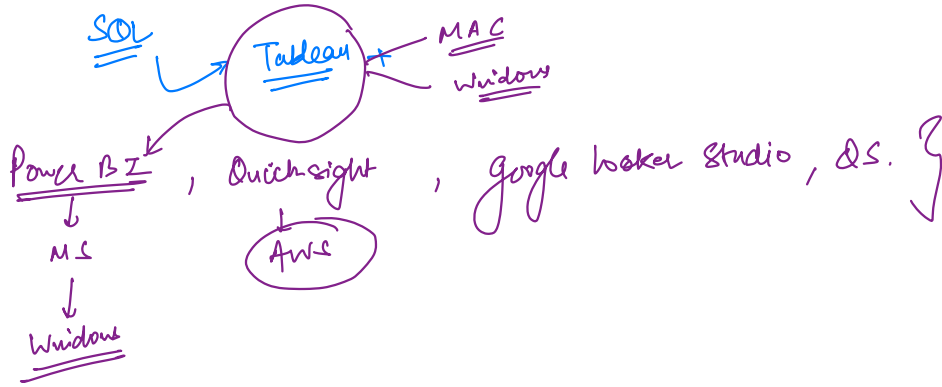 SQL
Tableau
MAC
Windows
Power BI , Quicksight , google looker Studio , QS. }
MS
AWS
Windows